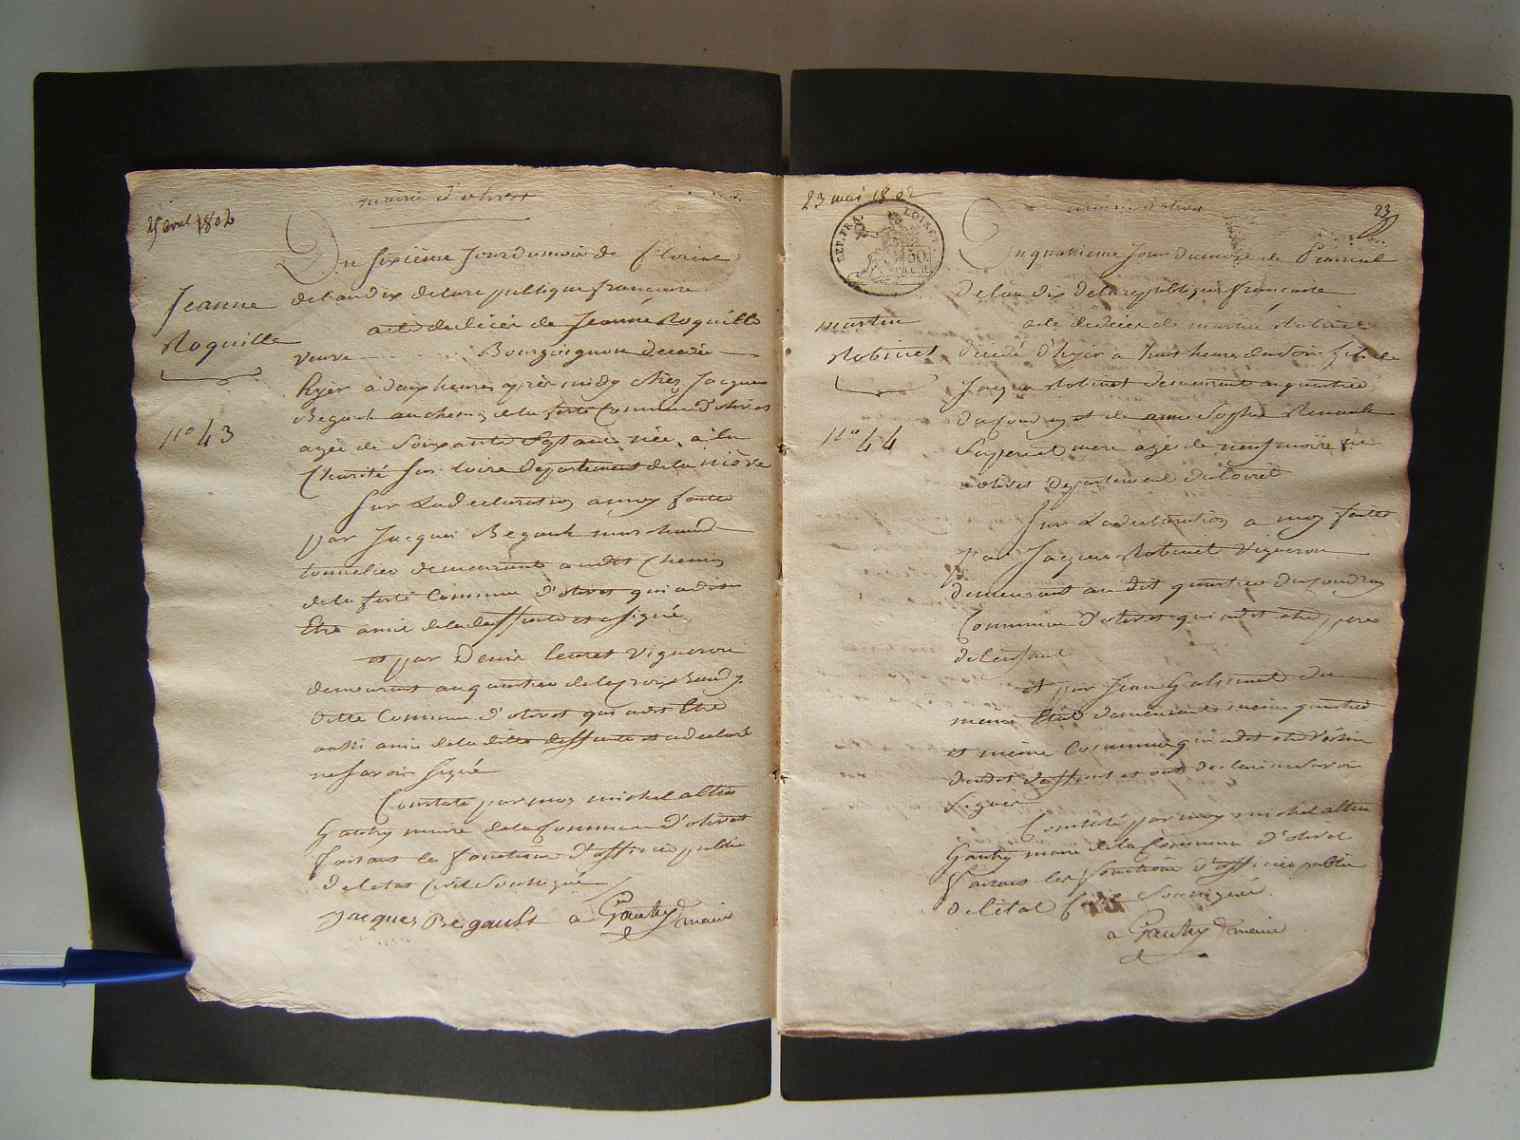 mairie d'olivet
25 avril 1802
Du sixième Jour du mois de floréal
de l'an dix de la republique francaise
Jeanne
Roquille
n° 43
acte de décès de Jeanne Roquille
veuve Bourgoignon décédée
hyer à deux heures après midy chez Jacques
Begault au chemin de la ferté Commune d'olivet
agée de soixante sept ans née à la
Charité sur loire Departement de la nièvre
sur la declaration a moy faitte
par Jacques Begault marchand
tonnelier demeurant audit chemin
de la ferté Commune d'olivet qui a dit
Etre amie de la deffunte et a signé
et par Denis leuret vigneron
demeurant au quartier de la croix
ditte Commune d'olivet qui a dit Etre
aussi amie de la ditte deffunte et a declaré
ne savoir signé
Constaté par moy michel altin
Gautry maire de la Commune d'olivet
faisant les fonctions d'officier public
de l'etat Civil Soussigné
Jacques Begault a Gautry maire
23 mai 1802
REP. FRA. LOIRET
50
mairie d'olivet
23
Du quatrieme Jour du mois de Prairial
de l'an dix de la republique francaise
martin
Robinet
n° 44
acte de décès de martin Robinet
décédé d'hyer à huit heures du soir fils de
Jacques Robinet demeurant au quartier
du poudroy et de anne Sophie Renault
ses pere et mere agé de neuf mois né
à olivet departement du Loiret
sur la declaration a moy faitte
par Jacques Robinet vigneron
demeurant au dit quartier du poudroy
Commune d'olivet qui a dit etre pere
de l'enfant
et par Jean du
meme Etat demeurant meme quartier
et même Commune qui a dit etre voisin
dudit deffunt et ont declaré ne savoir
signer
Constaté par moy michel altin
Gautry maire de la Commune d'olivet
faisant les fonctions d'officier public
de l'état Civil Soussigné
a Gautry maire